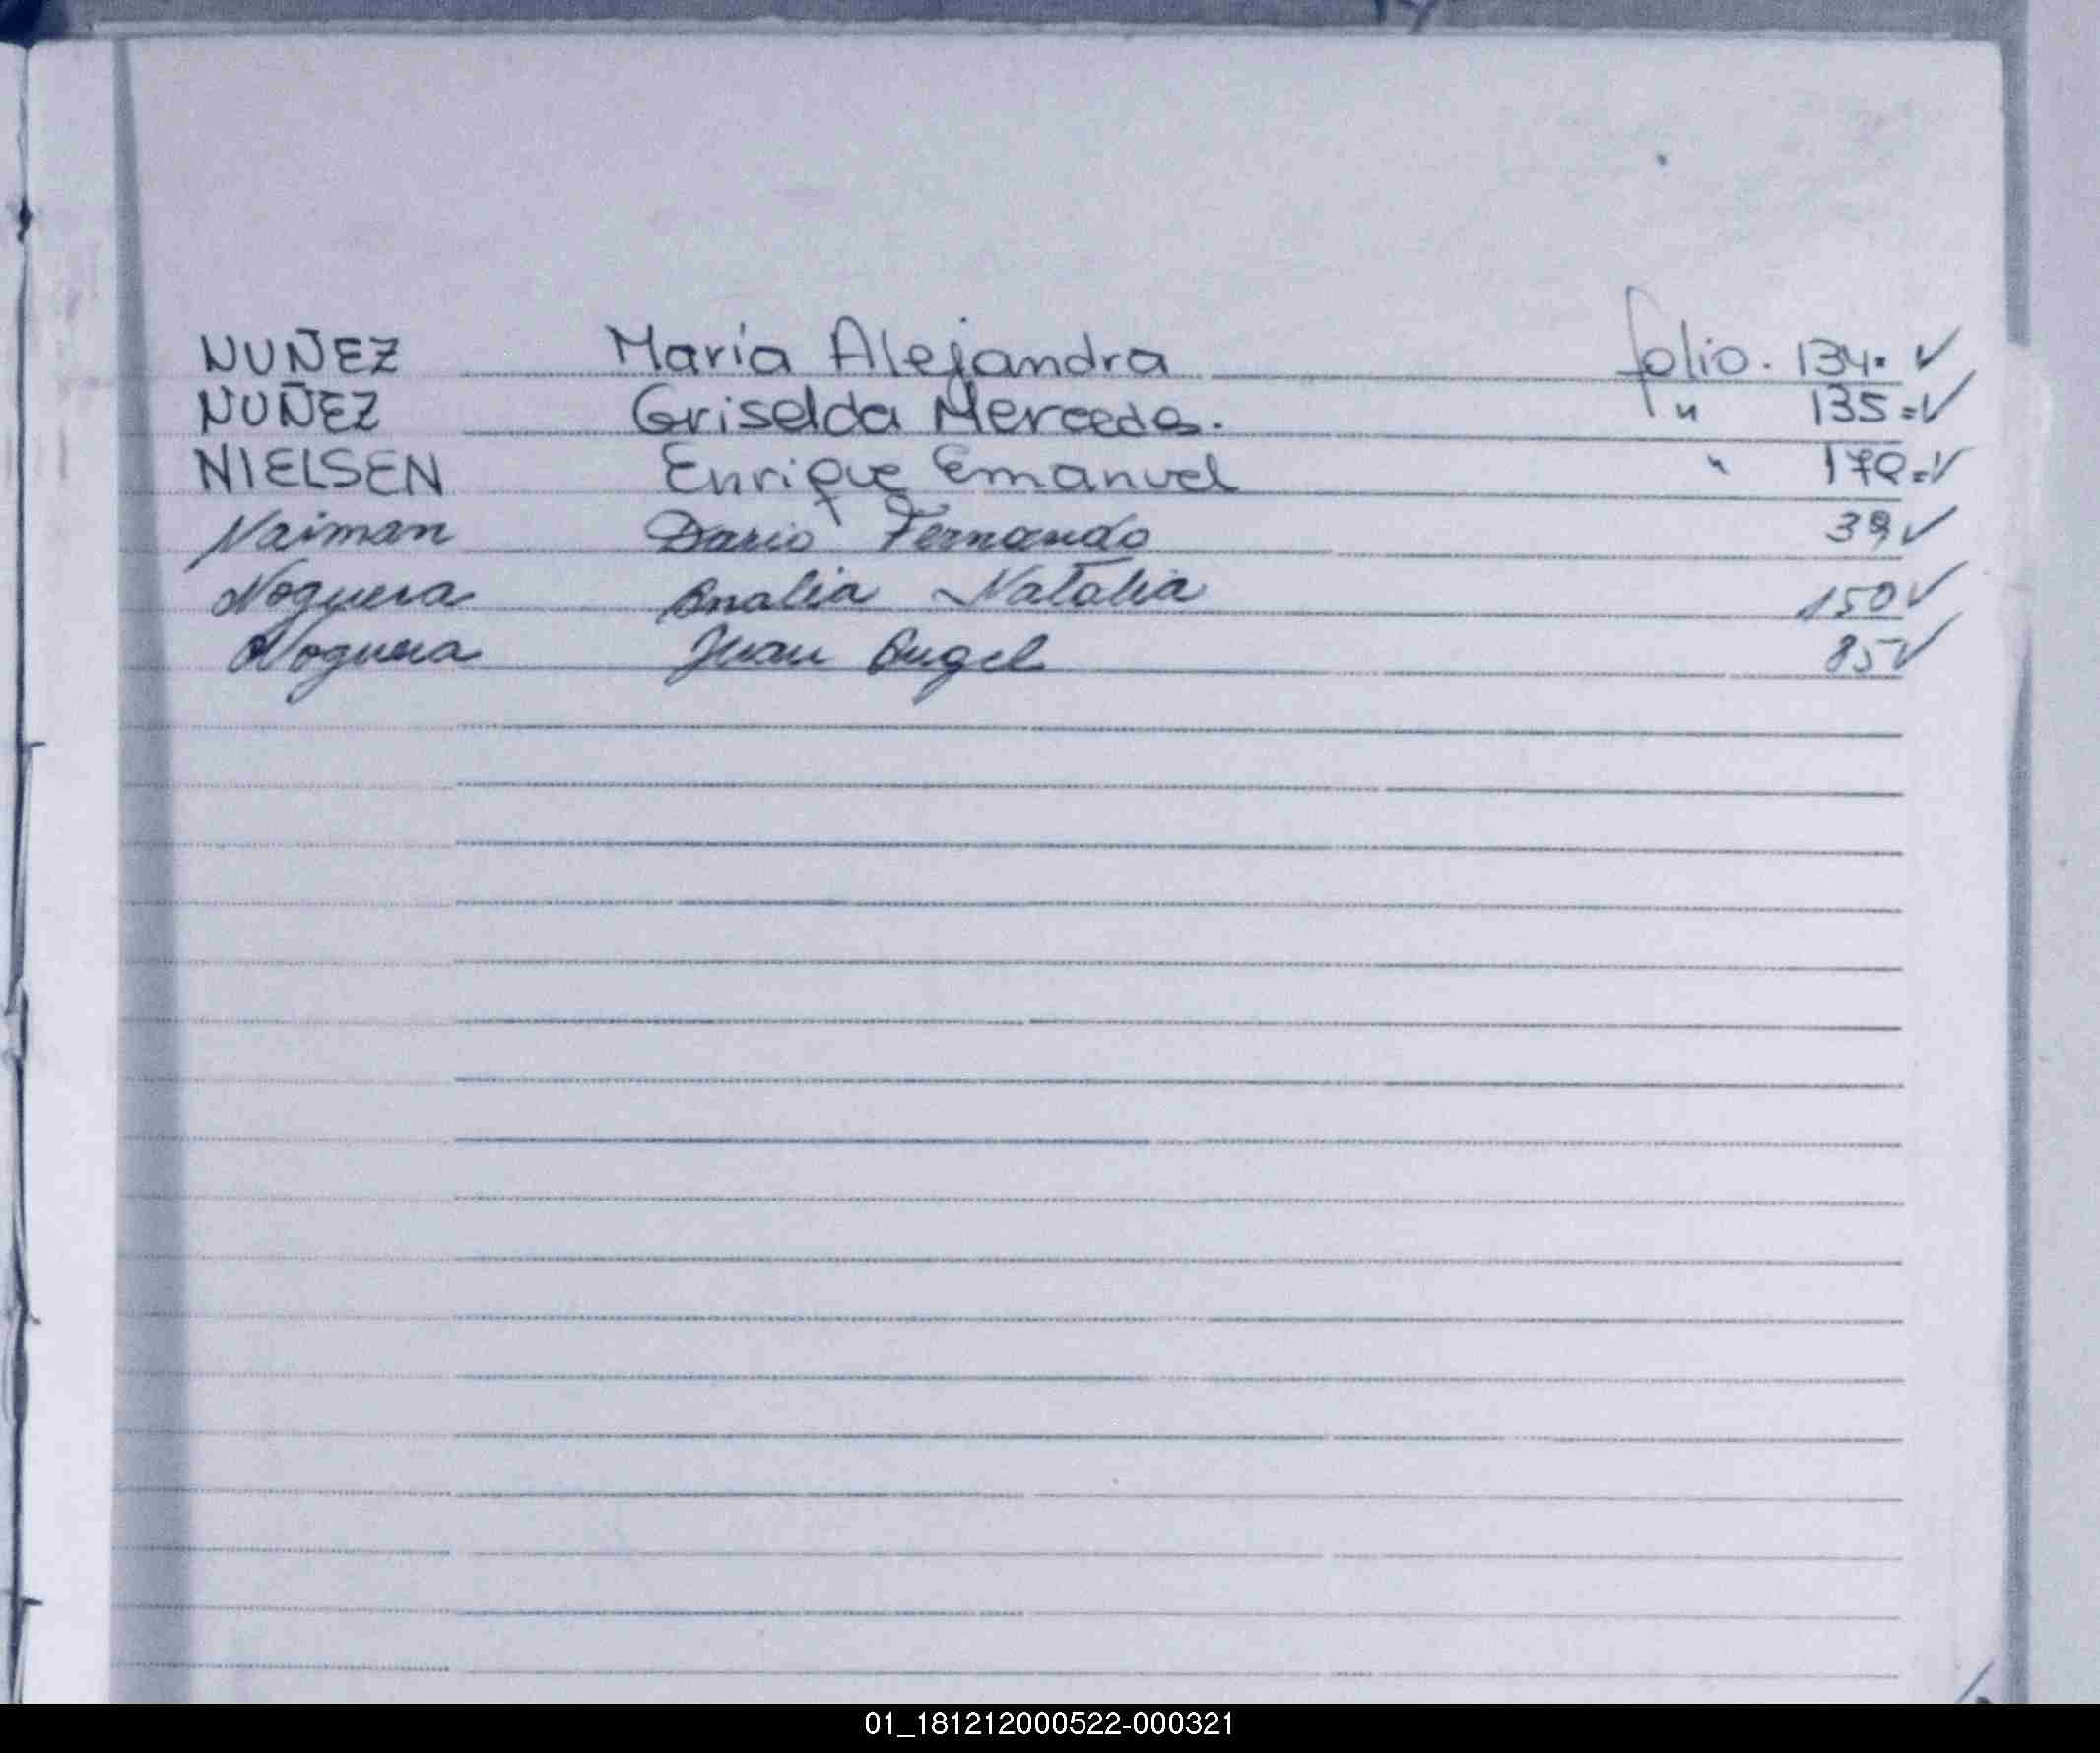 NUÑEZ María Alejandra folio. 134. ✓
NUÑEZ Griselda Mercedes. " 135=✓
NIELSEN Enrique Emanuel " 170=✓
Naiman Dario Fernando 39✓
Noguera Analia Natalia 150✓
Noguera Juan Angel 85✓
01_181212000522-000321